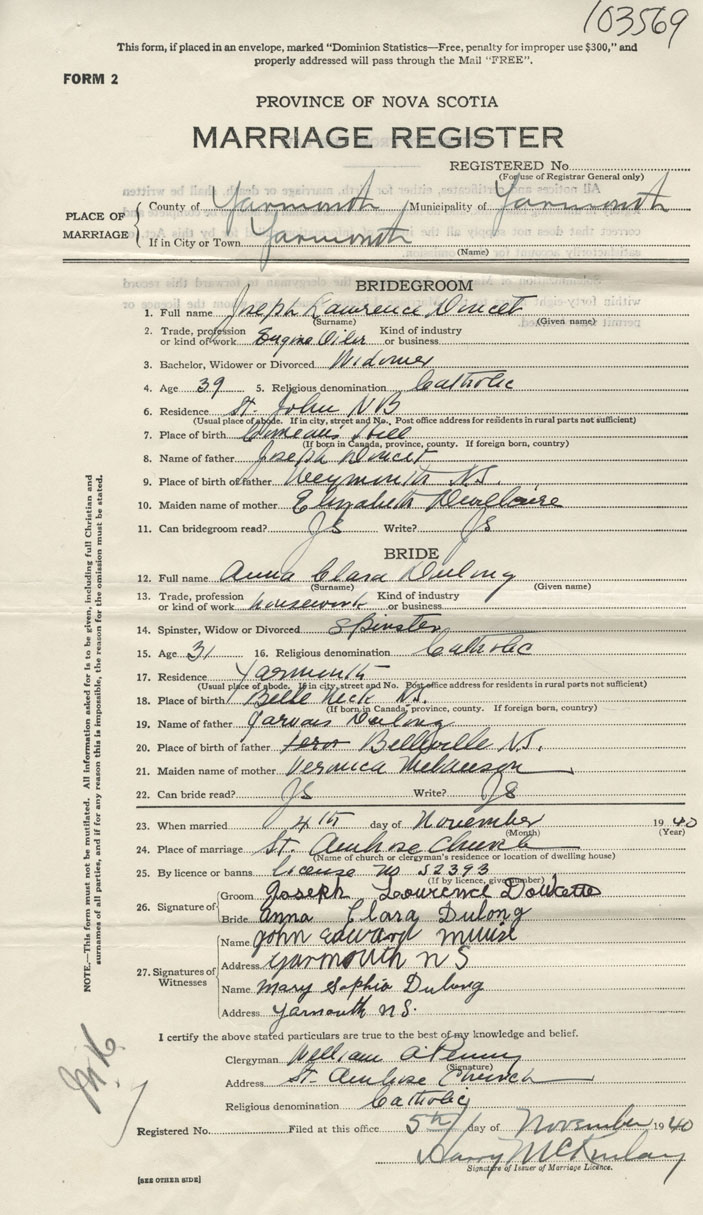 103569
This form, if placed in an envelope, marked "Dominion Statistics—Free, penalty for improper use $300," and
properly addressed will pass through the Mail "FREE".
FORM 2
PROVINCE OF NOVA SCOTIA
MARRIAGE REGISTER
REGISTERED No.
(For use of Registrar General only)
PLACE OF MARRIAGE
County of Yarmouth Municipality of Yarmouth
If in City or Town Yarmouth
(Name)
BRIDEGROOM
1. Full name Joseph Lawrence Doucet
(Surname) (Given name)
2. Trade, profession or kind of work Engine Oiler Kind of industry or business
3. Bachelor, Widower or Divorced Widower
4. Age 39 5. Religious denomination Catholic
6. Residence St. John NB
(Usual place of abode. If in city, street and No. Post office address for residents in rural parts not sufficient)
7. Place of birth Comeau's Hill
(If born in Canada, province, county. If foreign born, country)
8. Name of father Joseph Doucet
9. Place of birth of father Weymouth NS.
10. Maiden name of mother Elizabeth
11. Can bridegroom read? Write?
BRIDE
12. Full name Anna Clara Dulong
(Surname) (Given name)
13. Trade, profession or kind of work housework Kind of industry or business
14. Spinster, Widow or Divorced Spinster
15. Age 31 16. Religious denomination Catholic
17. Residence Yarmouth
(Usual place of abode. If in city, street and No. Post office address for residents in rural parts not sufficient)
18. Place of birth Belle Neck NS.
(If born in Canada, province, county. If foreign born, country)
19. Name of father Jarvais Dulong
20. Place of birth of father Belleville NS.
21. Maiden name of mother Veronica
22. Can bride read? Write?
23. When married 4th day of November 1940
(Month) (Year)
24. Place of marriage St. Ambrose Church
(Name of church or clergyman's residence or location of dwelling house)
25. By licence or banns License no 52393
(If by licence, give number)
26. Signature of
Groom Joseph Lourence Doucette
Bride Anna Clara Dulong
27. Signatures of Witnesses
Name John Edward Muise
Address Yarmouth NS
Name Mary Sophia Dulong
Address Yarmouth NS.
I certify the above stated particulars are true to the best of my knowledge and belief.
Clergyman William A Penny
(Signature)
Address St. Ambrose Church
Religious denomination Catholic
Registered No. Filed at this office 5th day of November 1940
Harry McKinlay
Signature of Issuer of Marriage Licence.
[SEE OTHER SIDE]
NOTE.—This form must not be mutilated. All information asked for is to be given, including full Christian and
surnames of all parties, and if for any reason this is impossible, the reason for the omission must be stated.